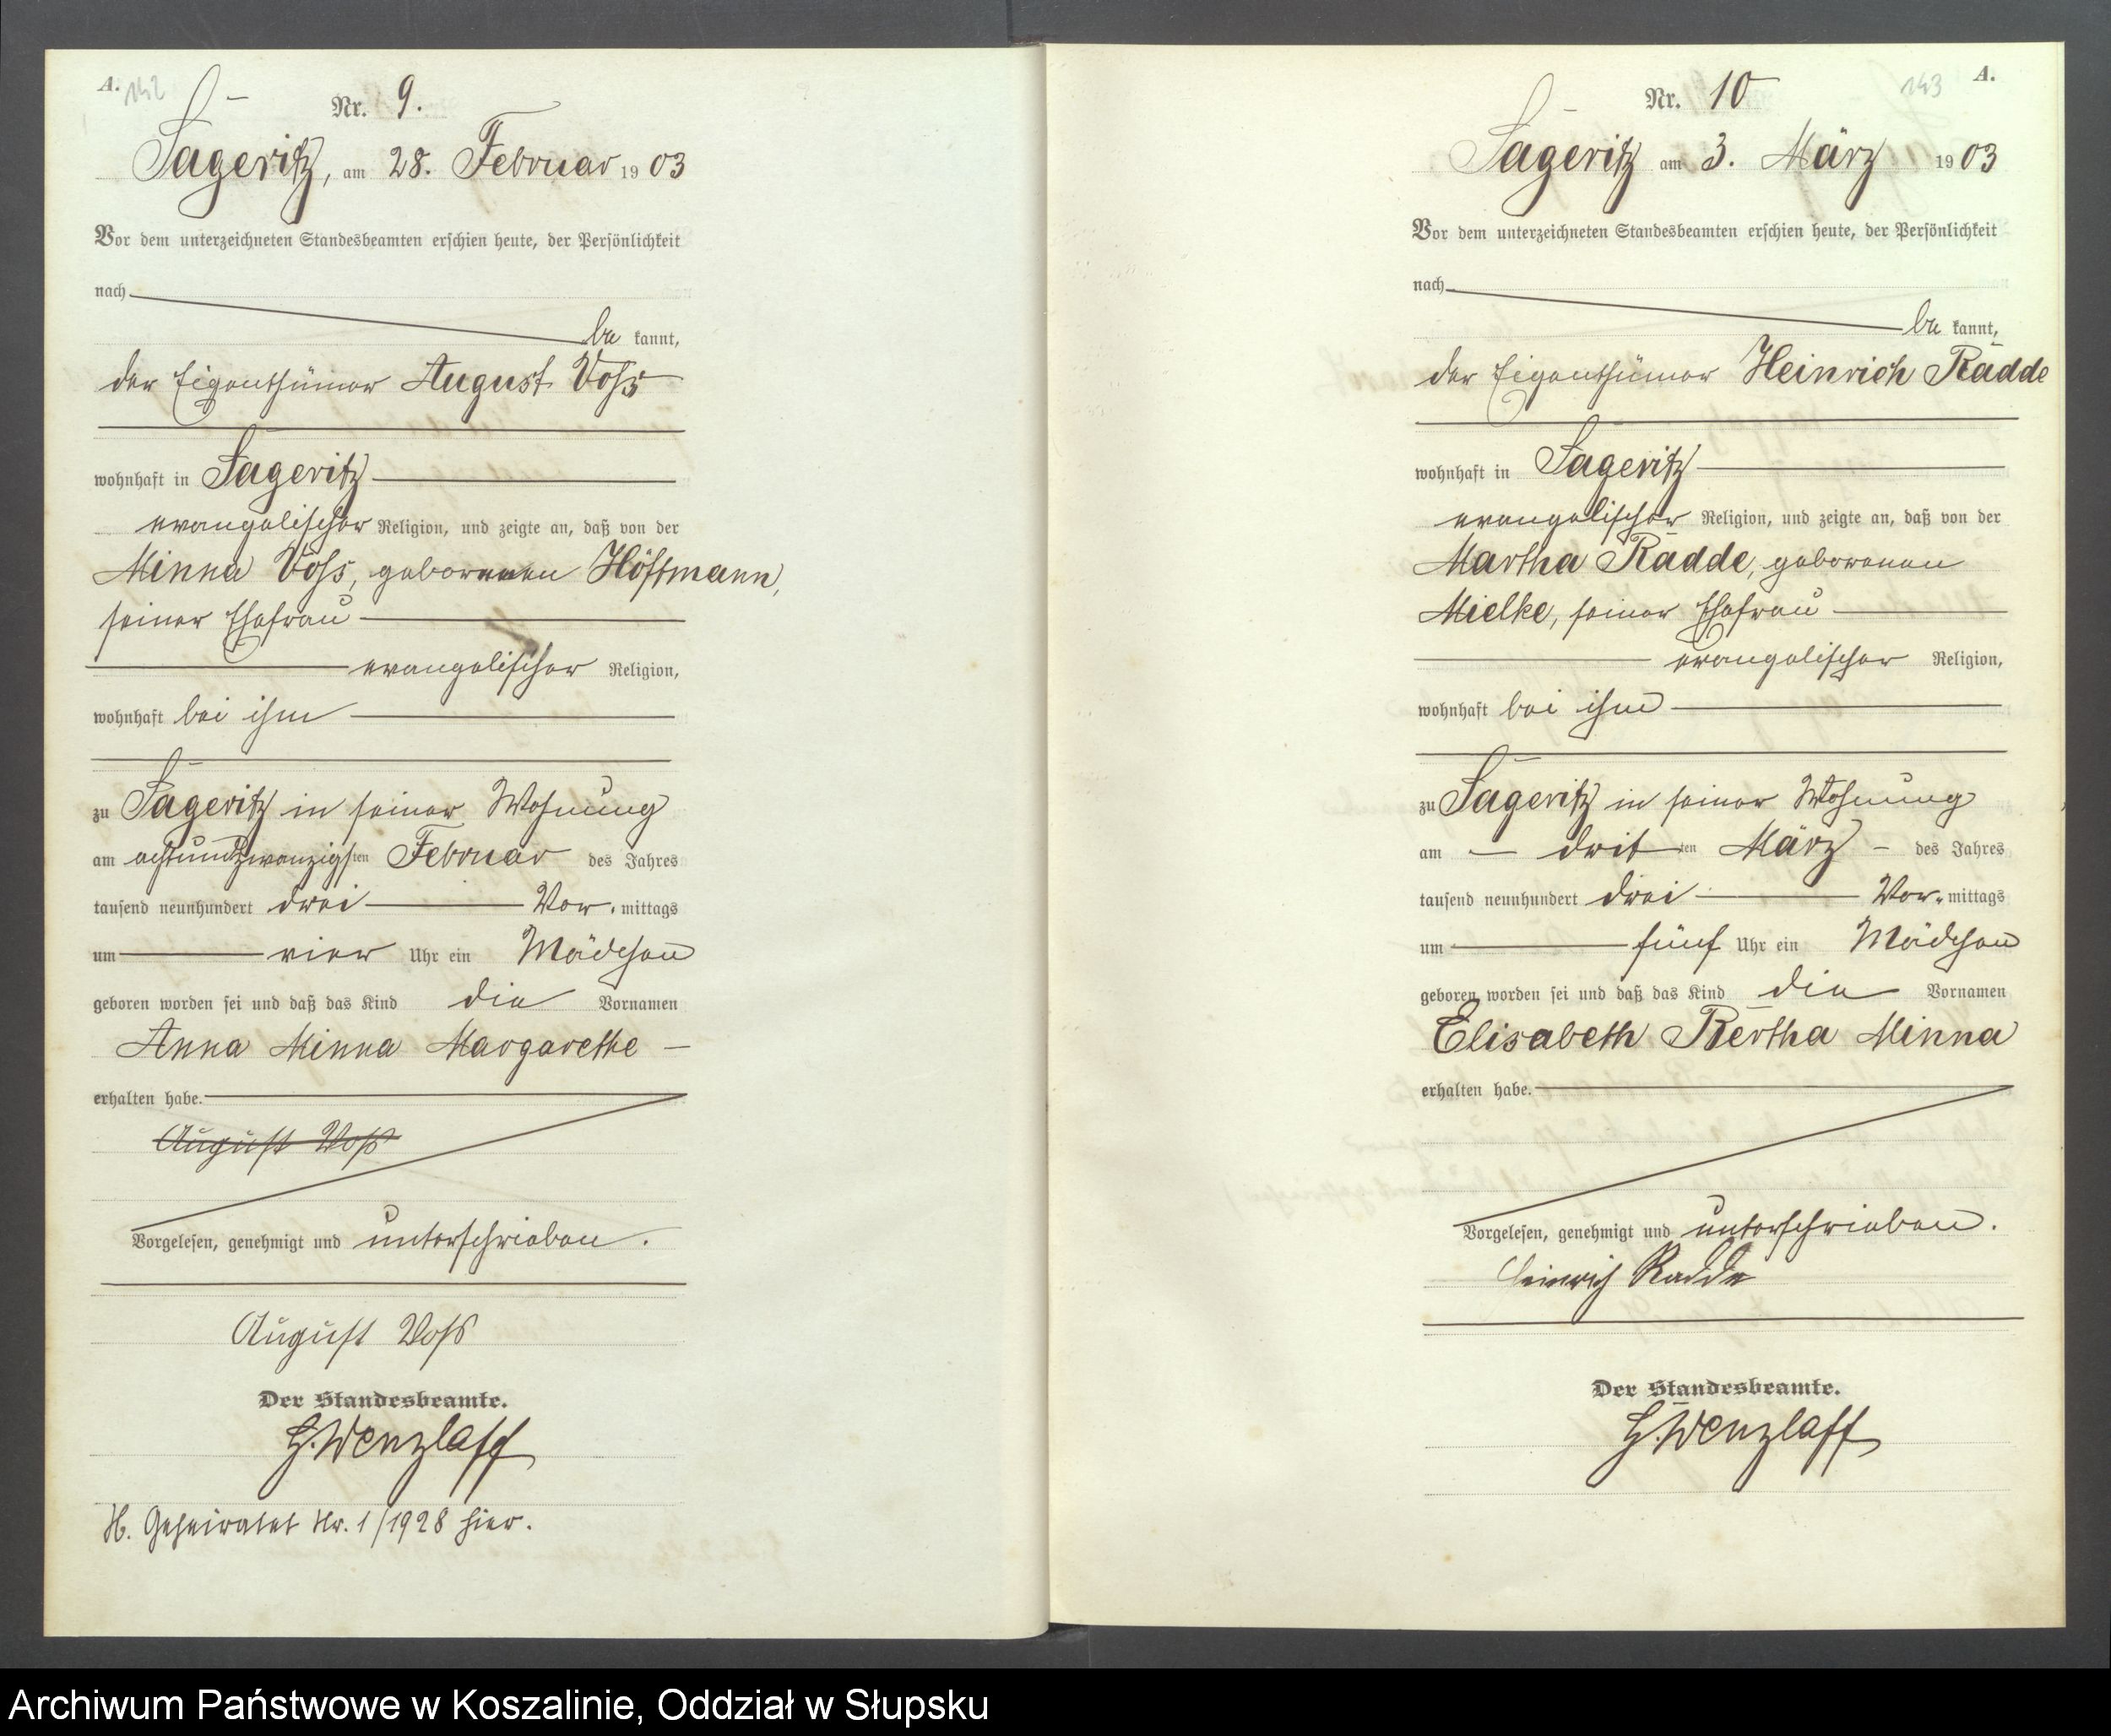 A.
142
Nr. 9.
Sageritz, am 28. Februar 1903
Vor dem unterzeichneten Standesbeamten erschien heute, der Persönlichkeit
nach
be kannt,
der Eigenthümer August Voss
wohnhaft in Sageritz
evangelischer Religion, und zeigte an, daß von der
Minna Voss, geborenen Höftmann,
seiner Ehefrau
evangelischer Religion,
wohnhaft bei ihm
zu Sageritz in seiner Wohnung
am achtundzwanzigsten Februar des Jahres
tausend neunhundert drei Vor. mittags
um vier Uhr ein Mädchen
geboren worden sei und daß das Kind die Vornamen
Anna Minna Margarethe
erhalten habe.
August Voß
Vorgelesen, genehmigt und unterschrieben.
August Voss
Der Standesbeamte.
H. Wenzlaff
H. Geheiratet Nr. 1/1928 hier.
143
A.
Nr. 10
Sageritz am 3. März 1903
Vor dem unterzeichneten Standesbeamten erschien heute, der Persönlichkeit
nach
be kannt,
der Eigenthümer Heinrich Radde
wohnhaft in Sageritz
evangelischer Religion, und zeigte an, daß von der
Martha Radde, geborenen
Mielke, seiner Ehefrau
evangelischer Religion,
wohnhaft bei ihm
zu Sageritz in seiner Wohnung
am dritten März des Jahres
tausend neunhundert drei Vor. mittags
um fünf Uhr ein Mädchen
geboren worden sei und daß das Kind die Vornamen
Elisabeth Bertha Minna
erhalten habe.
Vorgelesen, genehmigt und unterschrieben.
Heinrich Radde
Der Standesbeamte.
H. Wenzlaff
Archiwum Państwowe w Koszalinie, Oddział w Słupsku